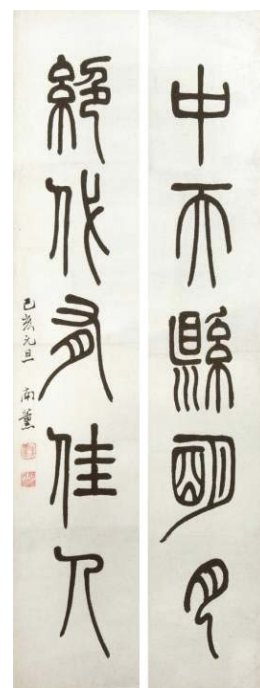 中天縣朙月
絕代有佳人
己亥元旦 南薰